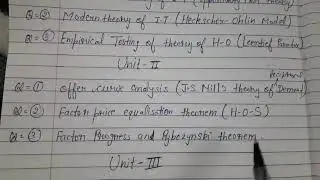 Q=② Modern theory of I.T (Heckscher-Ohlin Model)
Q=③ Empirical Testing of theory of H-O (Leontief Paradox
Unit-II
Q=① offer curve Analysis (J.S Mill's theory of Demand)
Q=② Factor price equalisation theorem (H-O-S)
Q=③ Factor Progress and Rybczynski theorem.
Unit-III